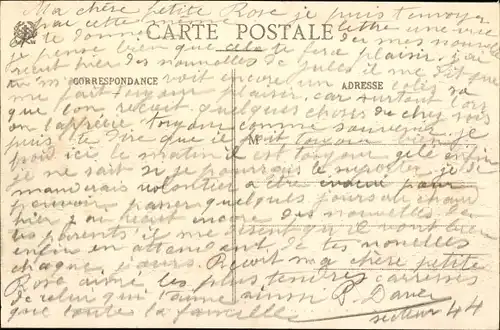 Ma chère petite Rose je puis t'envoyer
par cette même lettre une vue
et te donner de mes nouvelles
CARTE POSTALE
je pense bien que cela te fera plaisir. j'ai
reçut hier des nouvelles de Jules il me dit que
CORRESPONDANCE
ADRESSE
voit encore un
me fait toujour plaisir, car surtout lors
que l'on reçoit quelques choses de chez vous
on l'apprécie toujour comme souvenir. je
M
puis te dire que il fait toujours bien
froid ici, le matin il est toujour gelé enfin
je ne sait si je pourrais le supporter je de
manderais volontier a être évacué pour
pouvoir passer quelques jours au chaud
hier j'ai reçut encore des nouvelles de
tes parents il me disent qu'il vont bien
enfin en attendant de tes nouvelles
chaque jours. Reçoit ma chère petite
Rose aimé les plus tendres caresses
de celui qui t'aime ainsi
que toute la famille
P. David
secteur 44